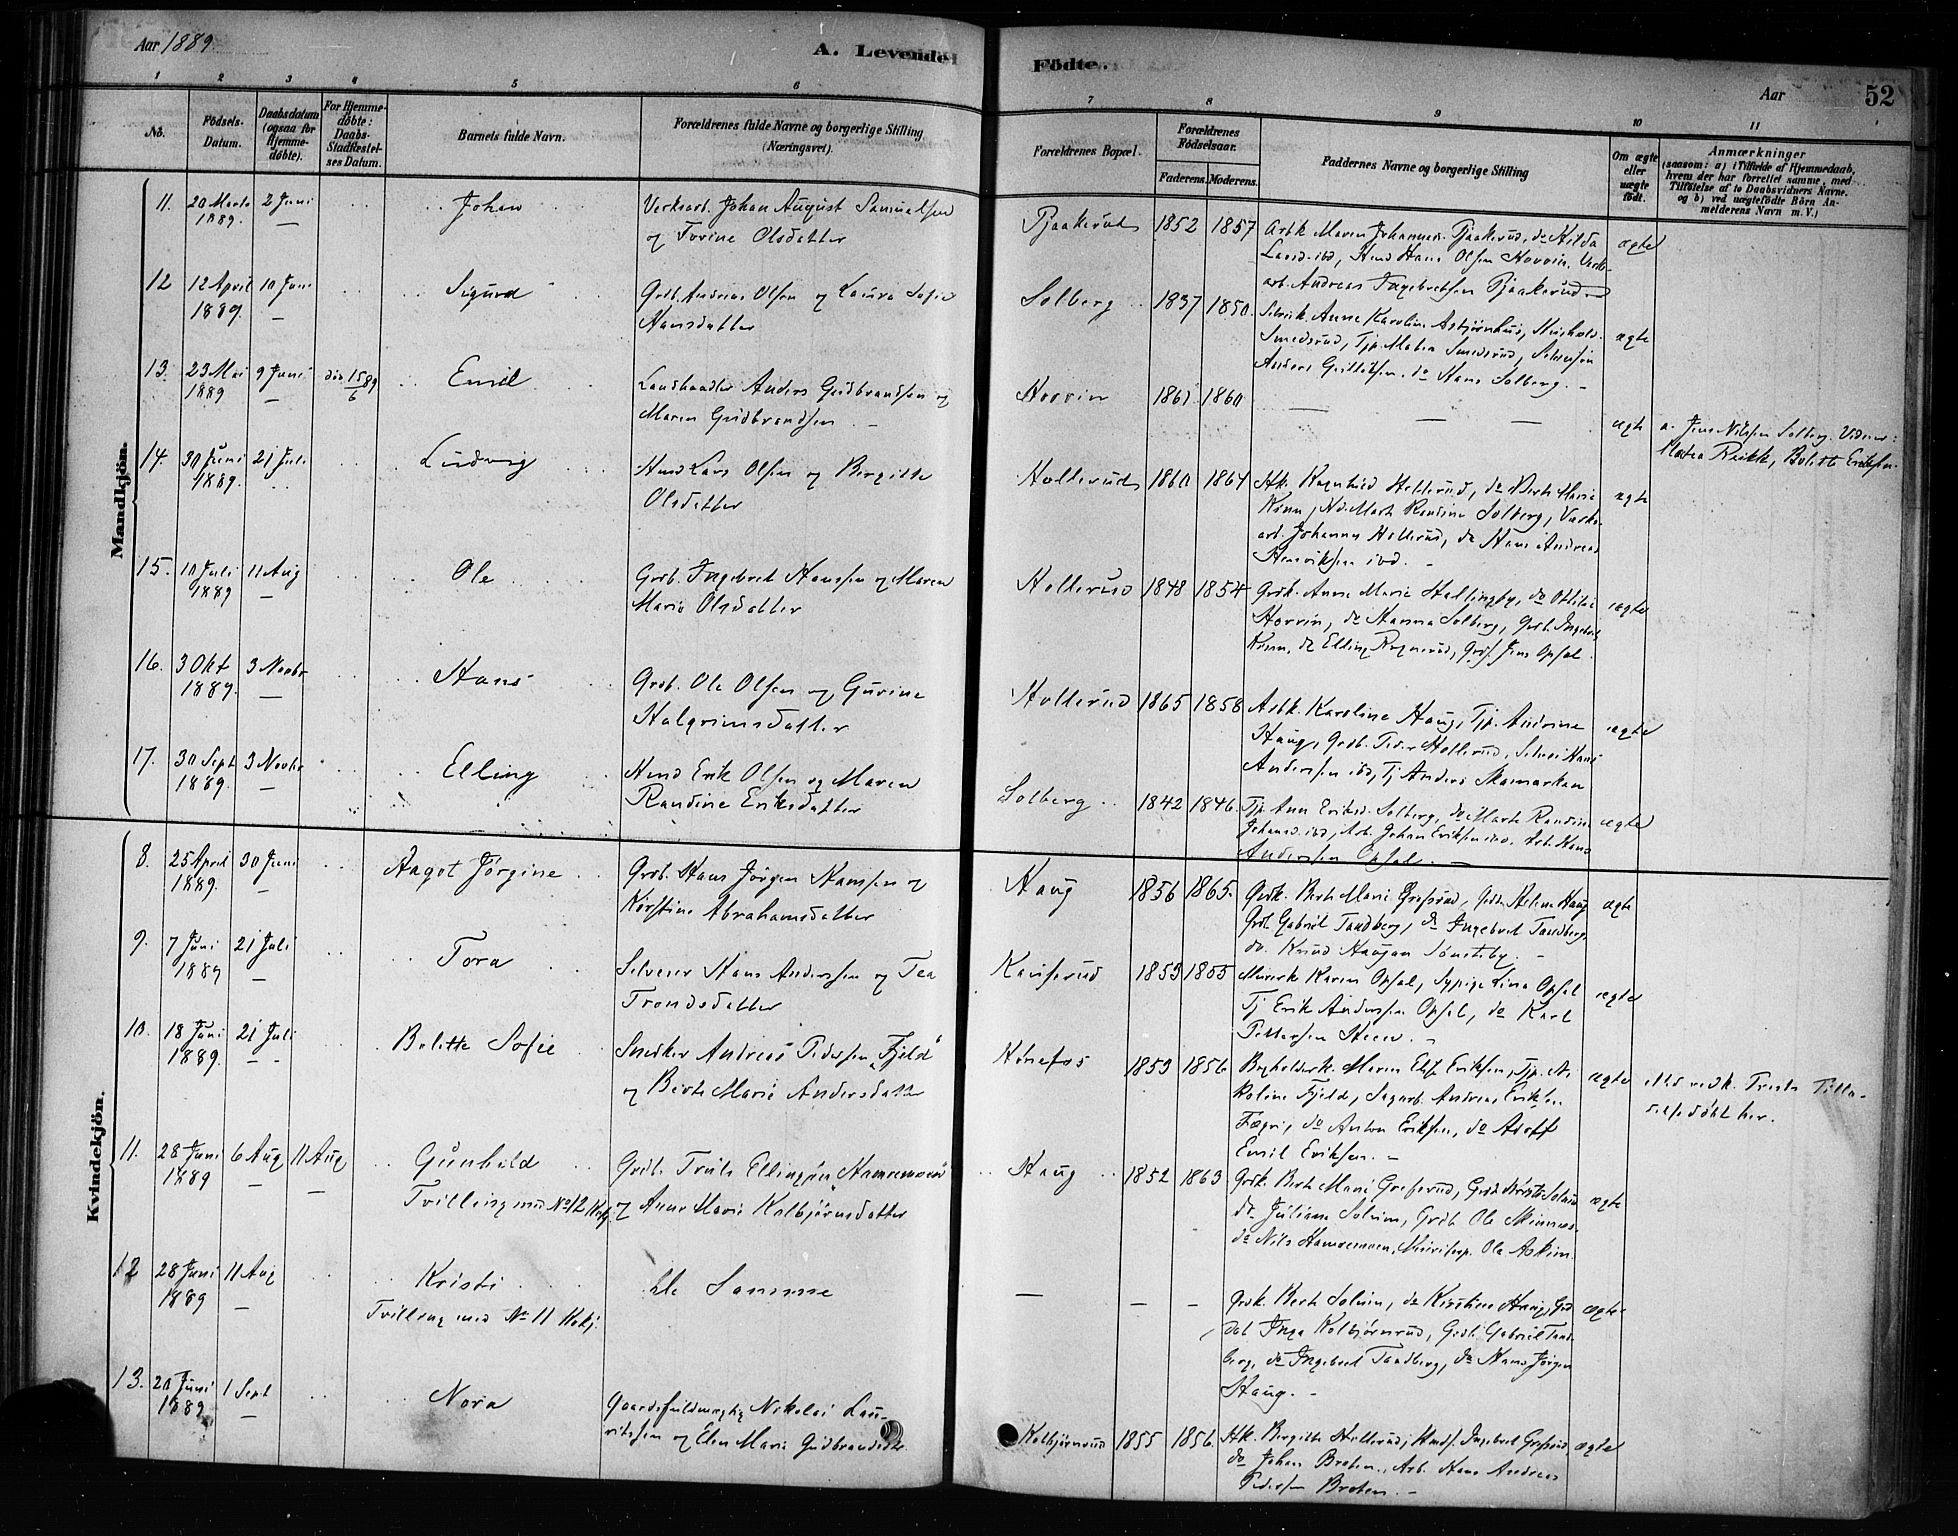 Aar 1889.
A. Levende
Födte.
Aar
52
1 2 3 4 5 6 7 8 9 10 11
No.
Födsels-
Datum.
Daabsdatum
(ogsaa for
Hjemme-
døbte).
For Hjemme-
døbte:
Daabs-
Stadfæstel-
ses Datum.
Barnets fulde Navn.
Forældrenes fulde Navne og borgerlige Stilling
(Næringsvei).
Forældrenes Bopæl.
Forældrenes
Födselsaar.
Faderens. Moderens.
Faddernes Navne og borgerlige Stilling
Om ægte
eller
uægte
födt.
Anmærkninger
(saasom: a) i Tilfælde af Hjemmedaab,
hvem der har forrettet samme, med
Tilføielse af to Daabsvidners Navne.
og b) ved uægtefödte Börn An-
melderens Navn m. V.)
Mandkjön.
11. 20 Marts 1889. 2 Juni
Johan
Verksarb. Johan August Samuelsen
og Torine Olsdatter
Tjaakerud 1852 1857
Arbk Maren Johannesd. Tjaakerud, do Hilda
Larsd. ibd, Hmd Hans Olsen Hovrin, Verks-
arb. Andreas Ingebretsen Tjaakerud
ægte
12 12 April 1889. 10 Juni
Sigurd
Grdb. Andreas Olsen og Laura Sofie
Hansdatter
Solberg 1837 1850.
Selvsk. Anne Karoline Asbjørnhus,
Smedsrud, Tjp. Matea Smedsrud, Selveiersøn
Anders Gulliksen, do Hans Solberg. -
ægte
13. 23 Mai 1889 9 Juni døb 15/6 89
Emil
Landhandler Anders Gudbrandsen og
Maren Gudbrandsen -
Hovrin 1861 1860
— — —
ægte
a. Jens Nilssen Solberg. Vidner:
Matea Rækk, Bolette Eriksen.
14. 30 Juni 1889. 21 Juli
Ludvig
Hmd Lars Olsen og Birgitte
Olsdatter
Hollerud 1860 1864
Hk. Ragnhild Hollerud, do Berte Marie
Kinn, Marte Randine Solberg, Verks-
arb. Johannes Hollerud, do Hans Andreas
Henriksen ibd. -
ægte
15. 10 Juli 1889 11 Aug
Ole
Grdb. Ingebret Hansen og Maren
Marie Olsdatter
Hollerud 1848 1854
Grdk. Anne Marie Hallingby, do Ottilie
Hovrin, do Hanna Solberg, Grdb. Ingebret
Kinn, do Elling Rognerud, Grdf. Jens Opsal
ægte
16. 3 Okt 1889. 3 Novbr
Hans
Grdb. Ole Olsen og Gurine
Halgrimsdatter
Hollerud 1865 1858
Arbk. Karoline Haug, Tjp. Andrine
Haug, Grdb. Peder Hollerud, Selvei Hans
Andersen ibd, Tj Anders Skamarken
ægte
17. 30 Sept 1889. 3 Novbr
Elling
Hmd Erik Olsen og Maren
Randine Eriksdatter
Solberg 1842 1846.
Tjp. Ann Eriksd. Solberg, do Marte Randine
Johansd. ibd, Arb. Johan Eriksen ibd. Arb. Hans
Andersen Opsal. —
ægte
Kvindekjön.
8. 25 April 1889. 30 Juni
Aagot Jørgine
Grdb. Hans Jørgen Hansen og
Kirstine Abrahamsdatter
Haug 1856 1865.
Grdk. Berte Marie Grefsrud, Gdk Helene Haug
Grdb. Gabriel Tandberg, do Ingebret Tandberg
do. Knud Haugan Sønsteby. -
ægte
9. 7 Juni 1889 21 Juli
Tora
Selveier Hans Andersen og Tea
Trondsdatter
Kauserud 1853 1855
Murerk Karen Opsal, Sypige Lina Opsal
Tj Erik Andersen Opsal, do Karl
Pettersen Heen. -
ægte
10. 18 Juni 1889. 21 Juli
Bolette Sofie
Snedker Andreas Pedersen "Fjeld"
og Berte Marie Andersdatter
Hønefos 1853 1856
Bogholderk. Maren Elise Eriksen, Tjp. Ni-
koline Fjeld, Sagarb. Andreas Eriksen
Fægri, do Anton Eriksen, do Adolf
Emil Eriksen. -
ægte
Med vedk. Prests Tilla-
delse døbt her.
11. 28 Juni 1889 6 Aug 11 Aug
Gunhild
Tvilling med No 12 Kvkj.
Grdb. Truls Ellingsen "Hamremoen"
og Anne Marie Kolbjørnsdatter
Haug 1852 1863
Grdk. Berte Marie Grefsrud, Grdk Kirsti Solum
do Juliane Solum, Grdb Ole Skinnes
do Nils Hamremoen, Ole Askim
ægte
12 28 Juni 1889 11 Aug
Kristi
Tvilling med No 11 Kvkj.
De Samme
— — —
Grdk. Berte Solum, do Kirstine Haug, Grd
dat Inga Kolbjørnrud, Grdb. Gabriel Tand-
berg, do Ingebret Tandberg, do Hans Jørgen
Haug. -
ægte
13. 20 Juni 1889 1 Sept
Nora
Gaardsfuldmægtig Nikolai Lau-
ritssen og Elen Marie Gudbrandsdt.
Kolbjørnrud 1855 1856.
Hk. Birgitte Hollerud, Hmdf. Ingebret Grefsrud
do Johan Braten, Arb. Hans Andreas
Pedersen Braten. -
ægte